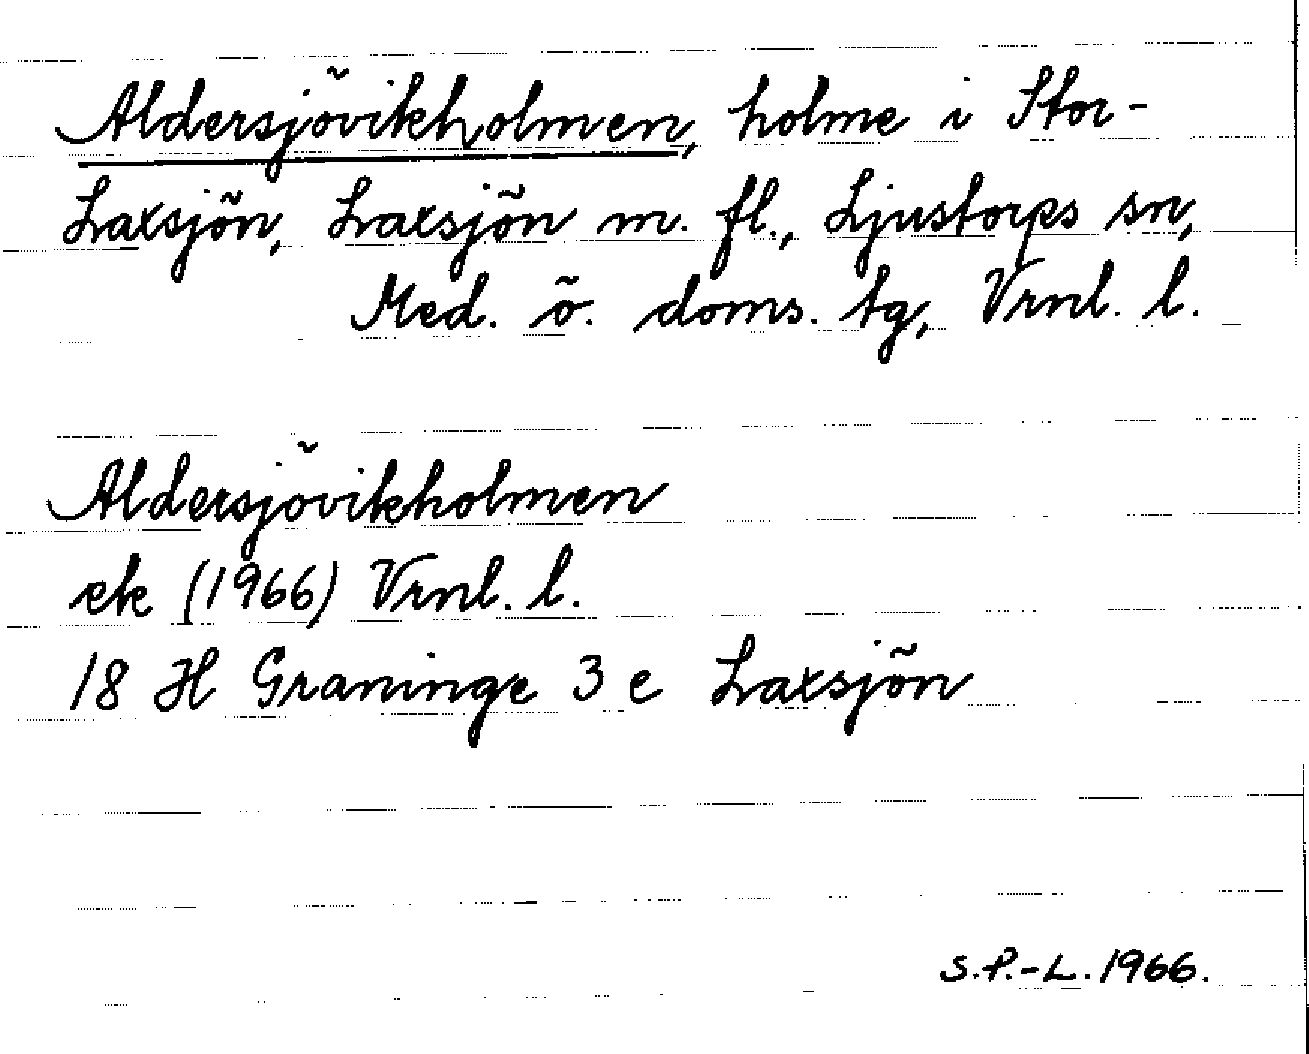 Aldersjövikholmen, holme i Stor-
Laxsjön, Laxsjön m. fl., Ljustorps sn,
Med. ö. doms. tg, Vrnl. l.
Aldersjövikholmen
ek (1966) Vrnl. l.
18 H Graninge 3 e Laxsjön
S.P.-L. 1966.